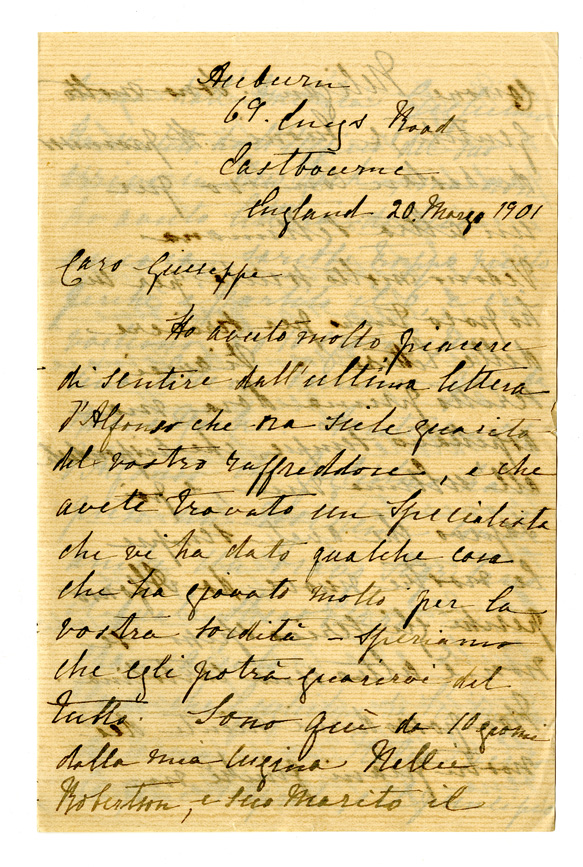 Auburn
69. Enys Road
Eastbourne
England 20. Marzo 1901
Caro Giuseppe
Ho avuto molto piacere
di sentire dall'ultima lettera
d'Alfonso che ora siete guarito
del vostro raffreddore, e che
avete trovato un Specialista
che vi ha dato qualche cosa
che ha giovato molto per la
vostra sordità - speriamo
che egli potrà guarirvi del
tutto. Sono quì da 10 giorni
dalla mia cugina Nellie
Robertson, e suo Marito il